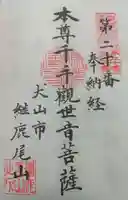 第二十番
奉納経
本尊千手観世音菩薩
犬山市
継鹿尾山